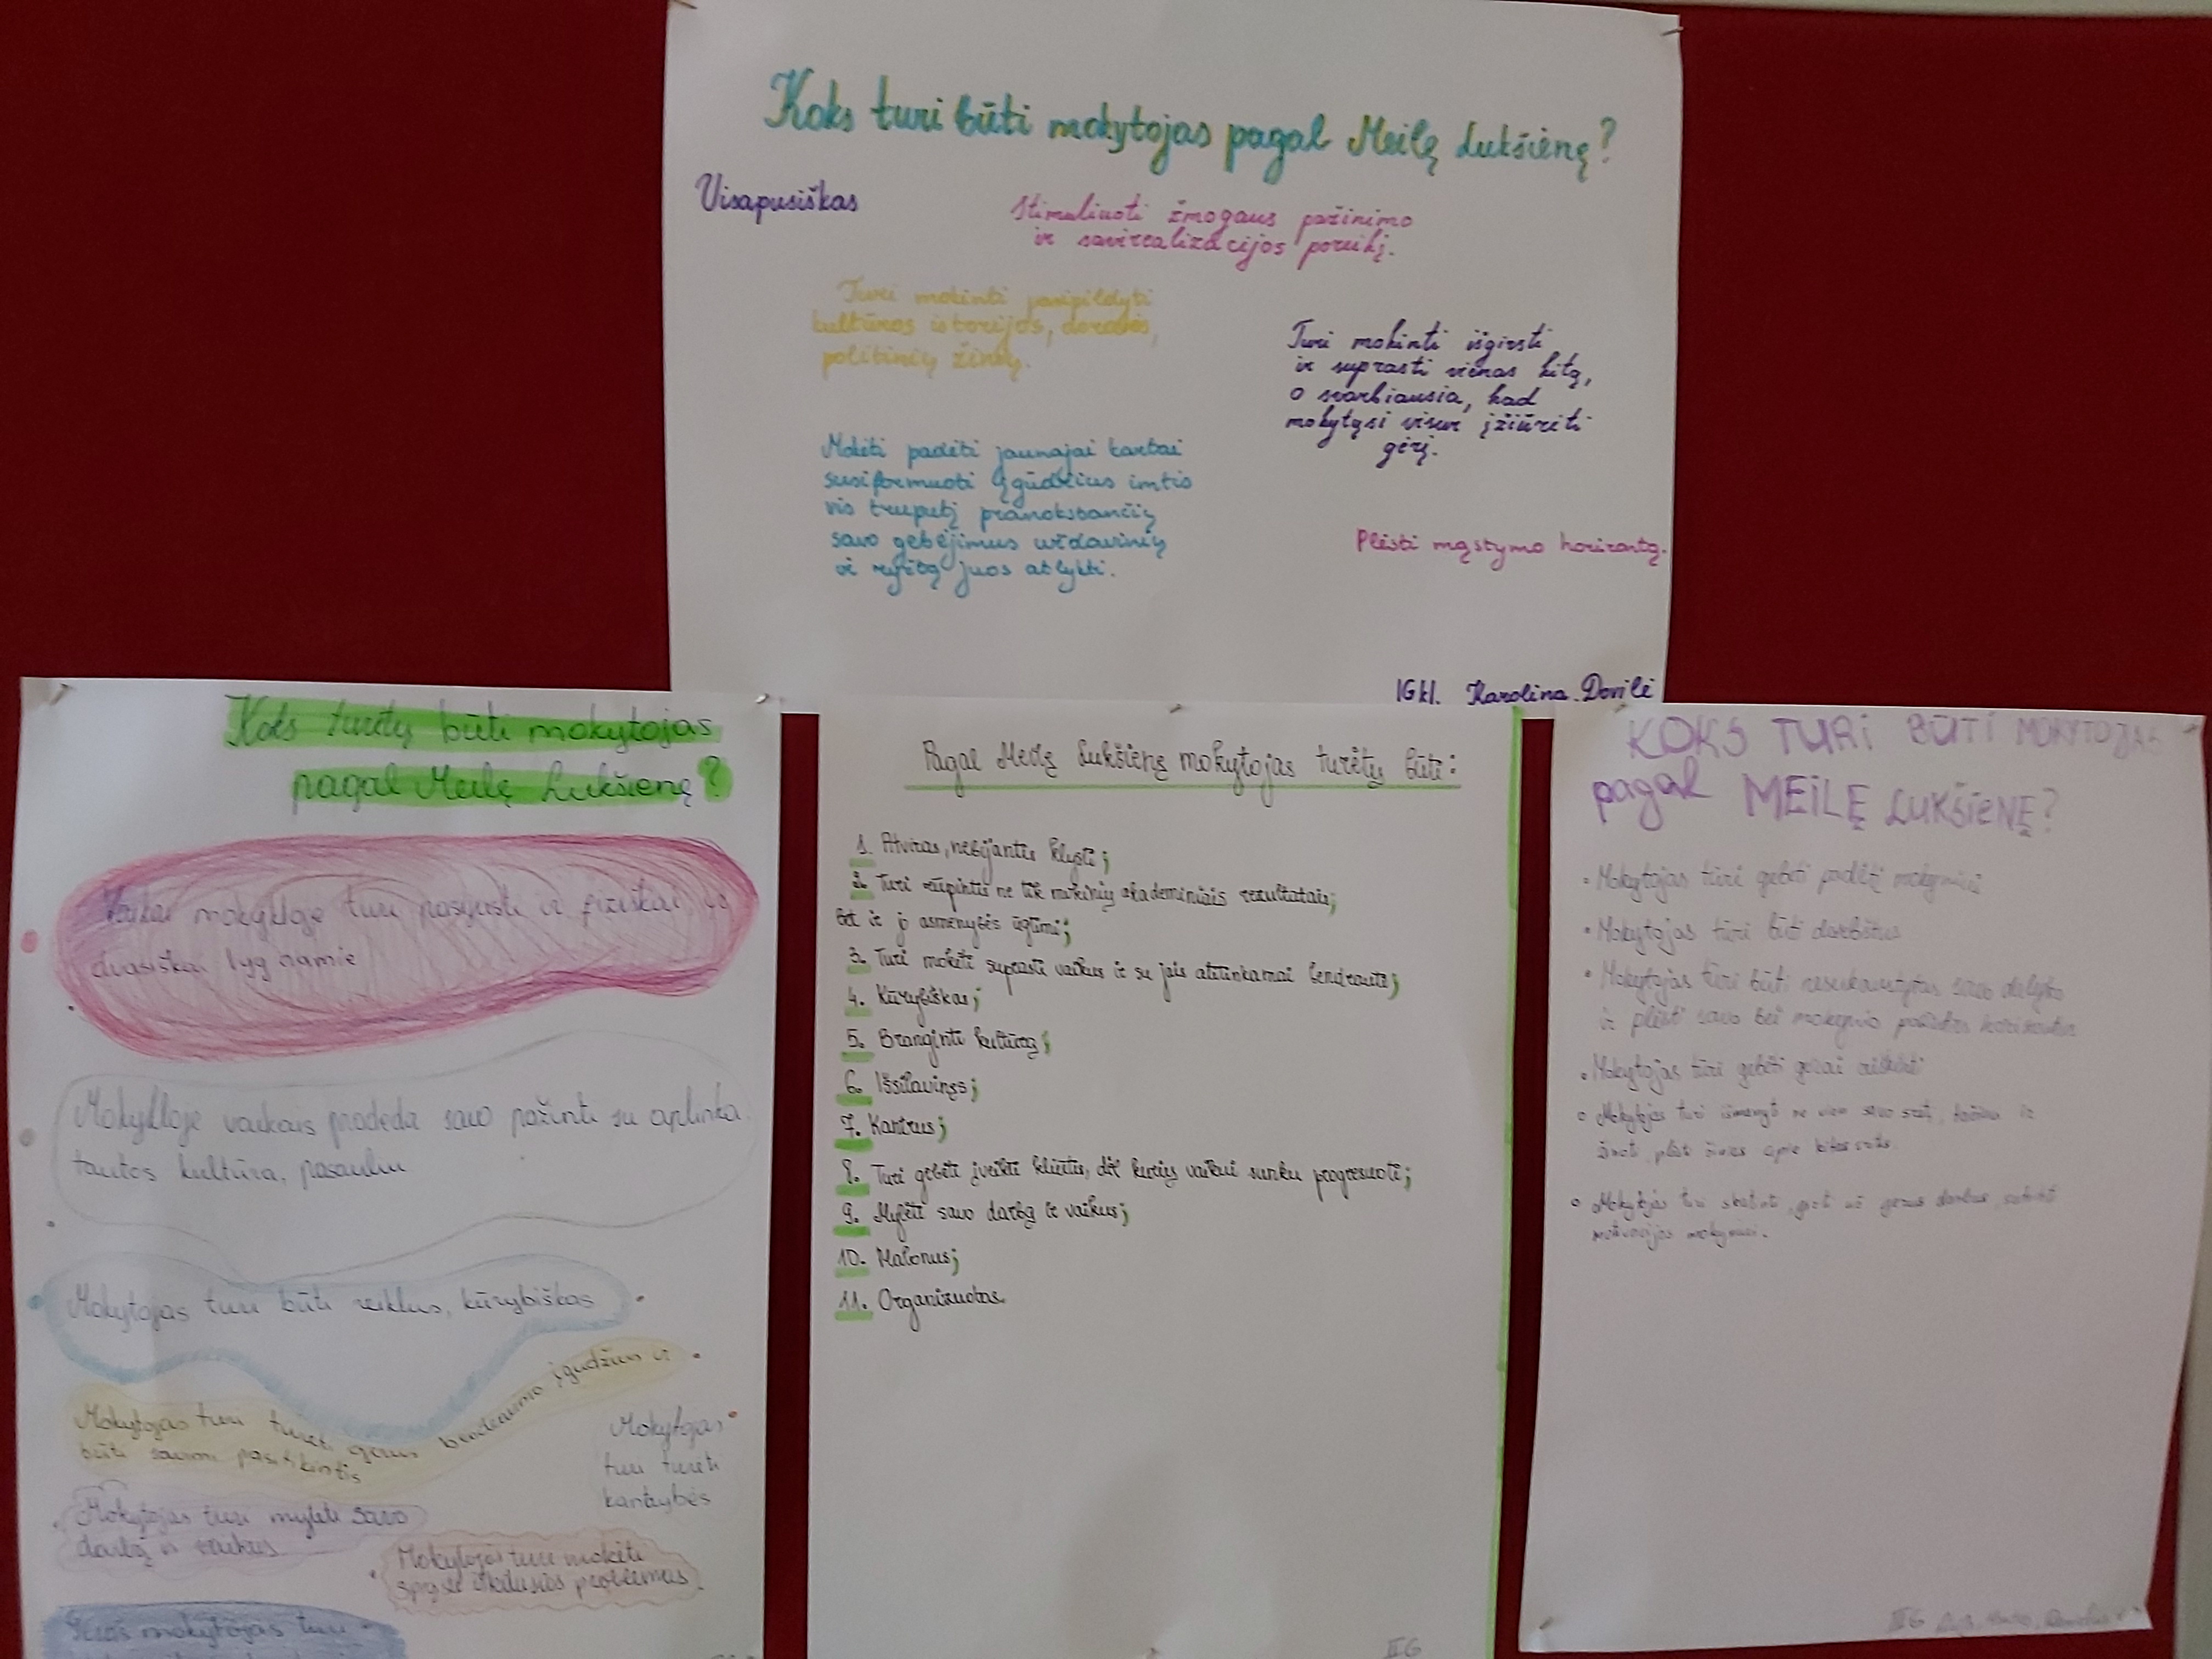 Koks turi būti mokytojas pagal Meilę Lukšienę?
Visapusiškas
Stimuliuoti žmogaus pažinimo
ir savirealizacijos poreikį.
Turi mokinti pasipildyti
kultūros istorijos, dorovės,
politinių žinių.
Turi mokinti išgirsti
ir suprasti vienas kitą,
o svarbiausia, kad
mokytąsi visur įžiūrėti
gėrį.
Mokėti padėti jaunajai kartai
susiformuoti įgūdžius imtis
vis truputį pranokstančių
savo gebėjimus uždavinių
ir ryžtą juos atlykti.
Plėsti mąstymo horizontą.
IGkl. Karolina. Dovilė
Koks turėtų būti mokytojas
pagal Meilę Lukšienę?
Vaikai mokykloje turi pasijusti ir fiziškai, ir
dvasiškai lyg namie
Mokykloje vaikais pradeda savo pažintį su aplinka,
tautos kultūra, pasauliu
Mokytojas turi būti reiklus, kūrybiškas
Mokytojas turi turėti gerus bendravimo įgudžius ir
būti savimi pasitikintis
Mokytojas
turi turėti
kantrybės
Mokytojas turi mylėti savo
darbą ir vaikus
Mokytojas turi mokėti
spręsti iškilusias problemas
Geras mokytojas turi
Pagal Meilę Lukšienę mokytojas turėtų būti:
1. Atviras, nebijantis klysti;
2. Turi rūpintis ne tik mokinių akademiniais rezultatais,
bet ir jo asmenybės ūgtimi;
3. Turi mokėti suprasti vaikus ir su jais atitinkamai bendrauti;
4. Kūrybiškas;
5. Branginti kultūrą;
6. Išsilavinęs;
7. Kantrus;
8. Turi gebėti įveikti kliūtis, dėl kurių vaikui sunku progresuoti;
9. Mylėti savo darbą ir vaikus;
10. Malonus;
11. Organizuotas.
IIG
KOKS TURI BŪTI MOKYTOJAS
pagal MEILĘ LUKŠIENĘ?
• Mokytojas turi gebėti padėti mokyniui
• Mokytojas turi būti darbštus
• Mokytojas turi būti savo dalyko
ir plėsti savo bei mokynio horizontus
• Mokytojas turi gebėti gerai
• Mokytojas turi išmanyti ne vien savo sritį, tačiau ir
žinoti, plėst žinias apie kitas sritis.
• Mokytojas turi skatinti, girt už gerus darbus, suteikti
motivacijos mokymuisi.
IIIG